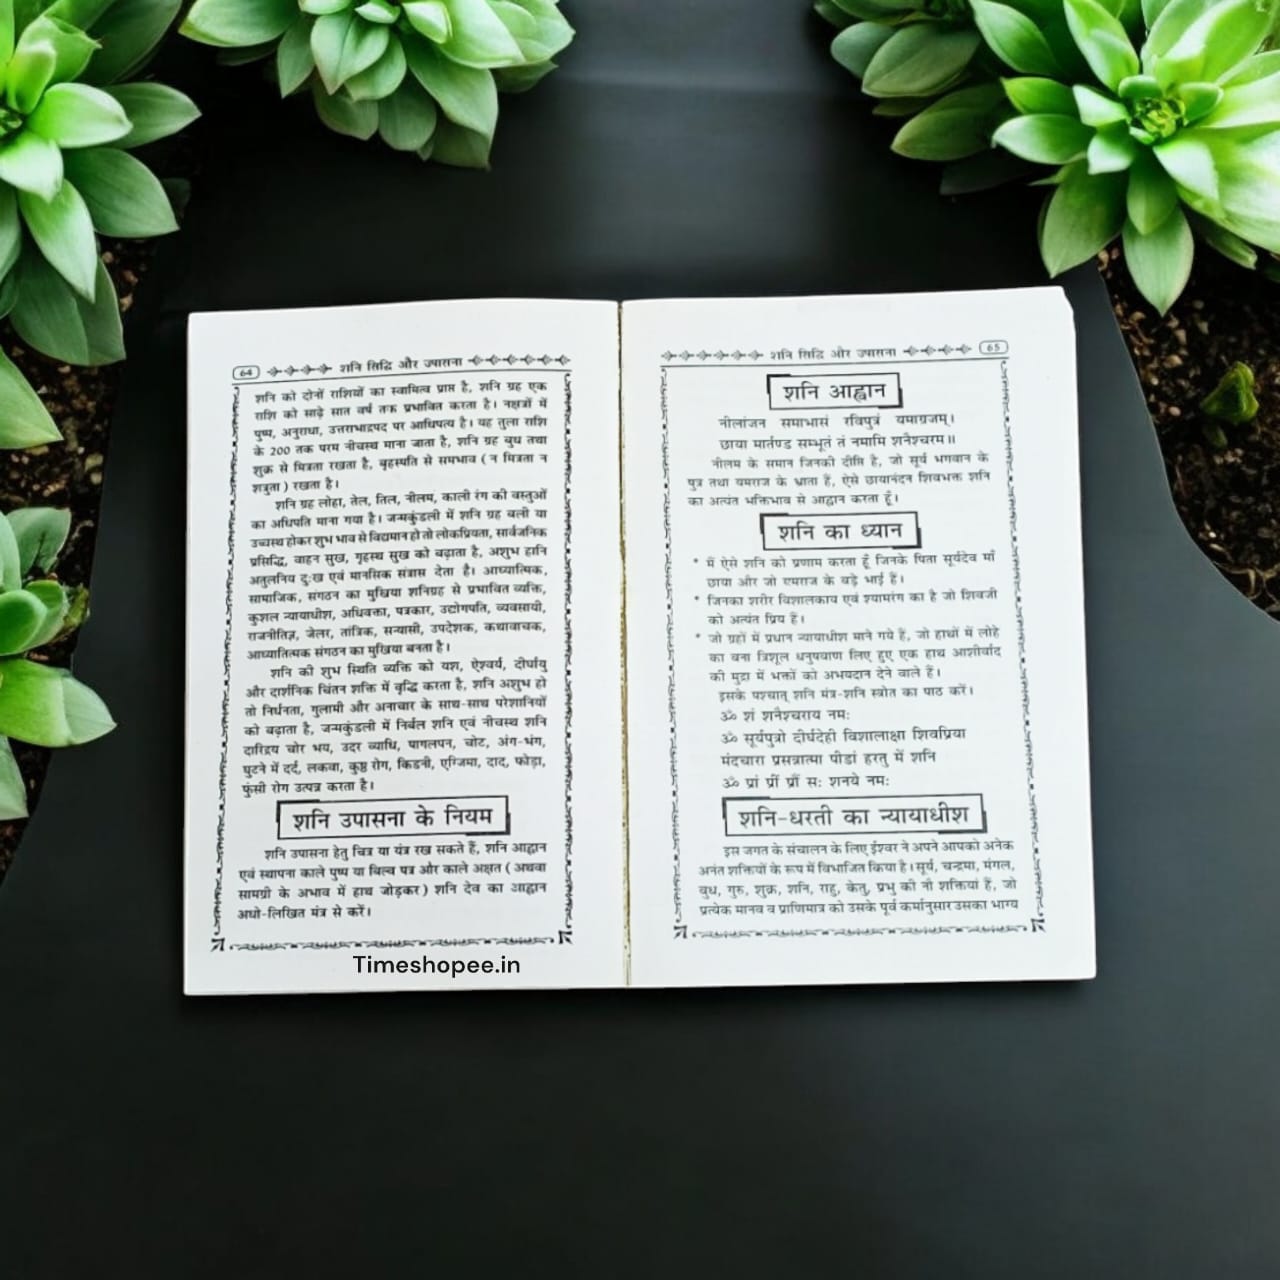 64 शनि सिद्धि और उपासना
शनि को दोनों राशियों का स्वामित्व प्राप्त है, शनि ग्रह एक
राशि को साढ़े सात वर्ष तक प्रभावित करता है। नक्षत्रों में
पुष्प, अनुराधा, उत्तराभाद्रपद पर आधिपत्य है। यह तुला राशि
के 200 तक परम नीचस्थ माना जाता है, शनि ग्रह बुध तथा
शुक्र से मित्रता रखता है, बृहस्पति से समभाव ( न मित्रता न
शत्रुता ) रखता है।
शनि ग्रह लोहा, तेल, तिल, नीलम, काली रंग की वस्तुओं
का अधिपति माना गया है। जन्मकुंडली में शनि ग्रह बली या
उच्चस्थ होकर शुभ भाव से विद्यमान हो तो लोकप्रियता, सार्वजनिक
प्रसिद्धि, वाहन सुख, गृहस्थ सुख को बढ़ाता है, अशुभ हानि
अतुलनिय दुःख एवं मानसिक संत्रास देता है। आध्यात्मिक,
सामाजिक, संगठन का मुखिया शनिग्रह से प्रभावित व्यक्ति,
कुशल न्यायाधीश, अधिवक्ता, पत्रकार, उद्योगपति, व्यवसायी,
राजनीतिज्ञ, जेलर, तांत्रिक, सन्यासी, उपदेशक, कथावाचक,
आध्यातित्मक संगठन का मुखिया बनता है।
शनि की शुभ स्थिति व्यक्ति को यश, ऐश्वर्य, दीर्घायु
और दार्शनिक चिंतन शक्ति में वृद्धि करता है, शनि अशुभ हो
तो निर्धनता, गुलामी और अनाचार के साथ-साथ परेशानियों
को बढ़ाता है, जन्मकुंडली में निर्बल शनि एवं नीचस्थ शनि
दारिद्रय चोर भय, उदर व्याधि, पागलपन, चोट, अंग-भंग,
घुटने में दर्द, लकवा, कुष्ठ रोग, किडनी, एग्जिमा, दाद, फोड़ा,
फुंसी रोग उत्पन्न करता है।
शनि उपासना के नियम
शनि उपासना हेतु चित्र या यंत्र रख सकते हैं, शनि आह्वान
एवं स्थापना काले पुष्प या बिल्व पत्र और काले अक्षत ( अथवा
सामग्री के अभाव में हाथ जोड़कर ) शनि देव का आह्वान
अधो-लिखित मंत्र से करें।
Timeshopee.in
शनि सिद्धि और उपासना 65
शनि आह्वान
नीलांजन समाभासं रविपुत्रं यमाग्रजम्।
छाया मार्तण्ड सम्भूतं तं नमामि शनैश्चरम॥
नीलम के समान जिनकी दीप्ति है, जो सूर्य भगवान के
पुत्र तथा यमराज के भ्राता हैं, ऐसे छायानंदन शिवभक्त शनि
का अत्यंत भक्तिभाव से आह्वान करता हूँ।
शनि का ध्यान
* मैं ऐसे शनि को प्रणाम करता हूँ जिनके पिता सूर्यदेव माँ
छाया और जो एमराज के बड़े भाई हैं।
* जिनका शरीर विशालकाय एवं श्यामरंग का है जो शिवजी
को अत्यंत प्रिय हैं।
* जो ग्रहों में प्रधान न्यायाधीश माने गये हैं, जो हाथों में लोहे
का बना त्रिशूल धनुषवाण लिए हुए एक हाथ आशीर्वाद
की मुद्रा में भक्तों को अभयदान देने वाले हैं।
इसके पश्चात् शनि मंत्र-शनि स्त्रोत का पाठ करें।
ॐ शं शनैश्चराय नमः
ॐ सूर्यपुत्रो दीर्घदेही विशालाक्षा शिवप्रिया
मंदचारा प्रसन्नात्मा पीडां हरतु में शनि
ॐ प्रां प्रीं प्रौं सः शनये नमः
शनि-धरती का न्यायाधीश
इस जगत के संचालन के लिए ईश्वर ने अपने आपको अनेक
अनंत शक्तियों के रूप में विभाजित किया है। सूर्य, चन्द्रमा, मंगल,
बुध, गुरु, शुक्र, शनि, राहु, केतु, प्रभु की नौ शक्तियां हैं, जो
प्रत्येक मानव व प्राणिमात्र को उसके पूर्व कर्मानुसार उसका भाग्य